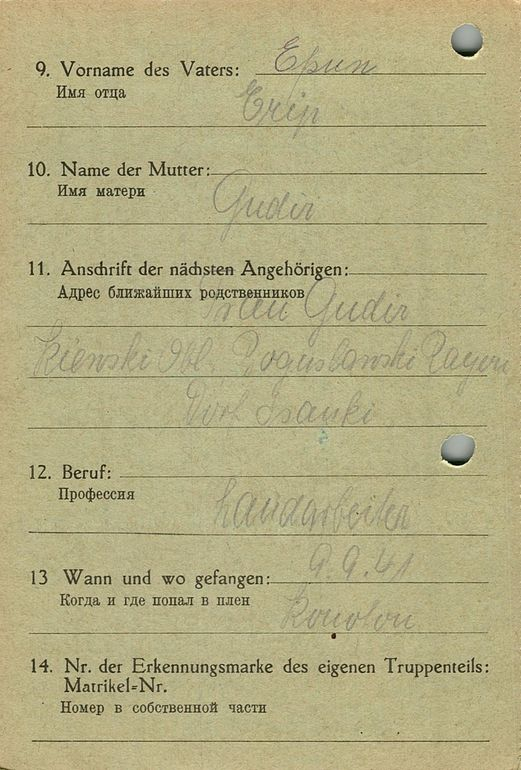 9. Vorname des Vaters:
Имя отца
10. Name der Mutter:
Имя матери
Gudir
11. Anschrift der nächsten Angehörigen:
Адрес ближайших родственников
Frau Gudir
Kiewski Obl., Boguslawski Rayon
Dorf Isauki
12. Beruf:
Профессия
Landarbeiter
9.9.41
13 Wann und wo gefangen:
Когда и где попал в плен
14. Nr. der Erkennungsmarke des eigenen Truppenteils:
Matrikel=Nr.
Номер в собственной части